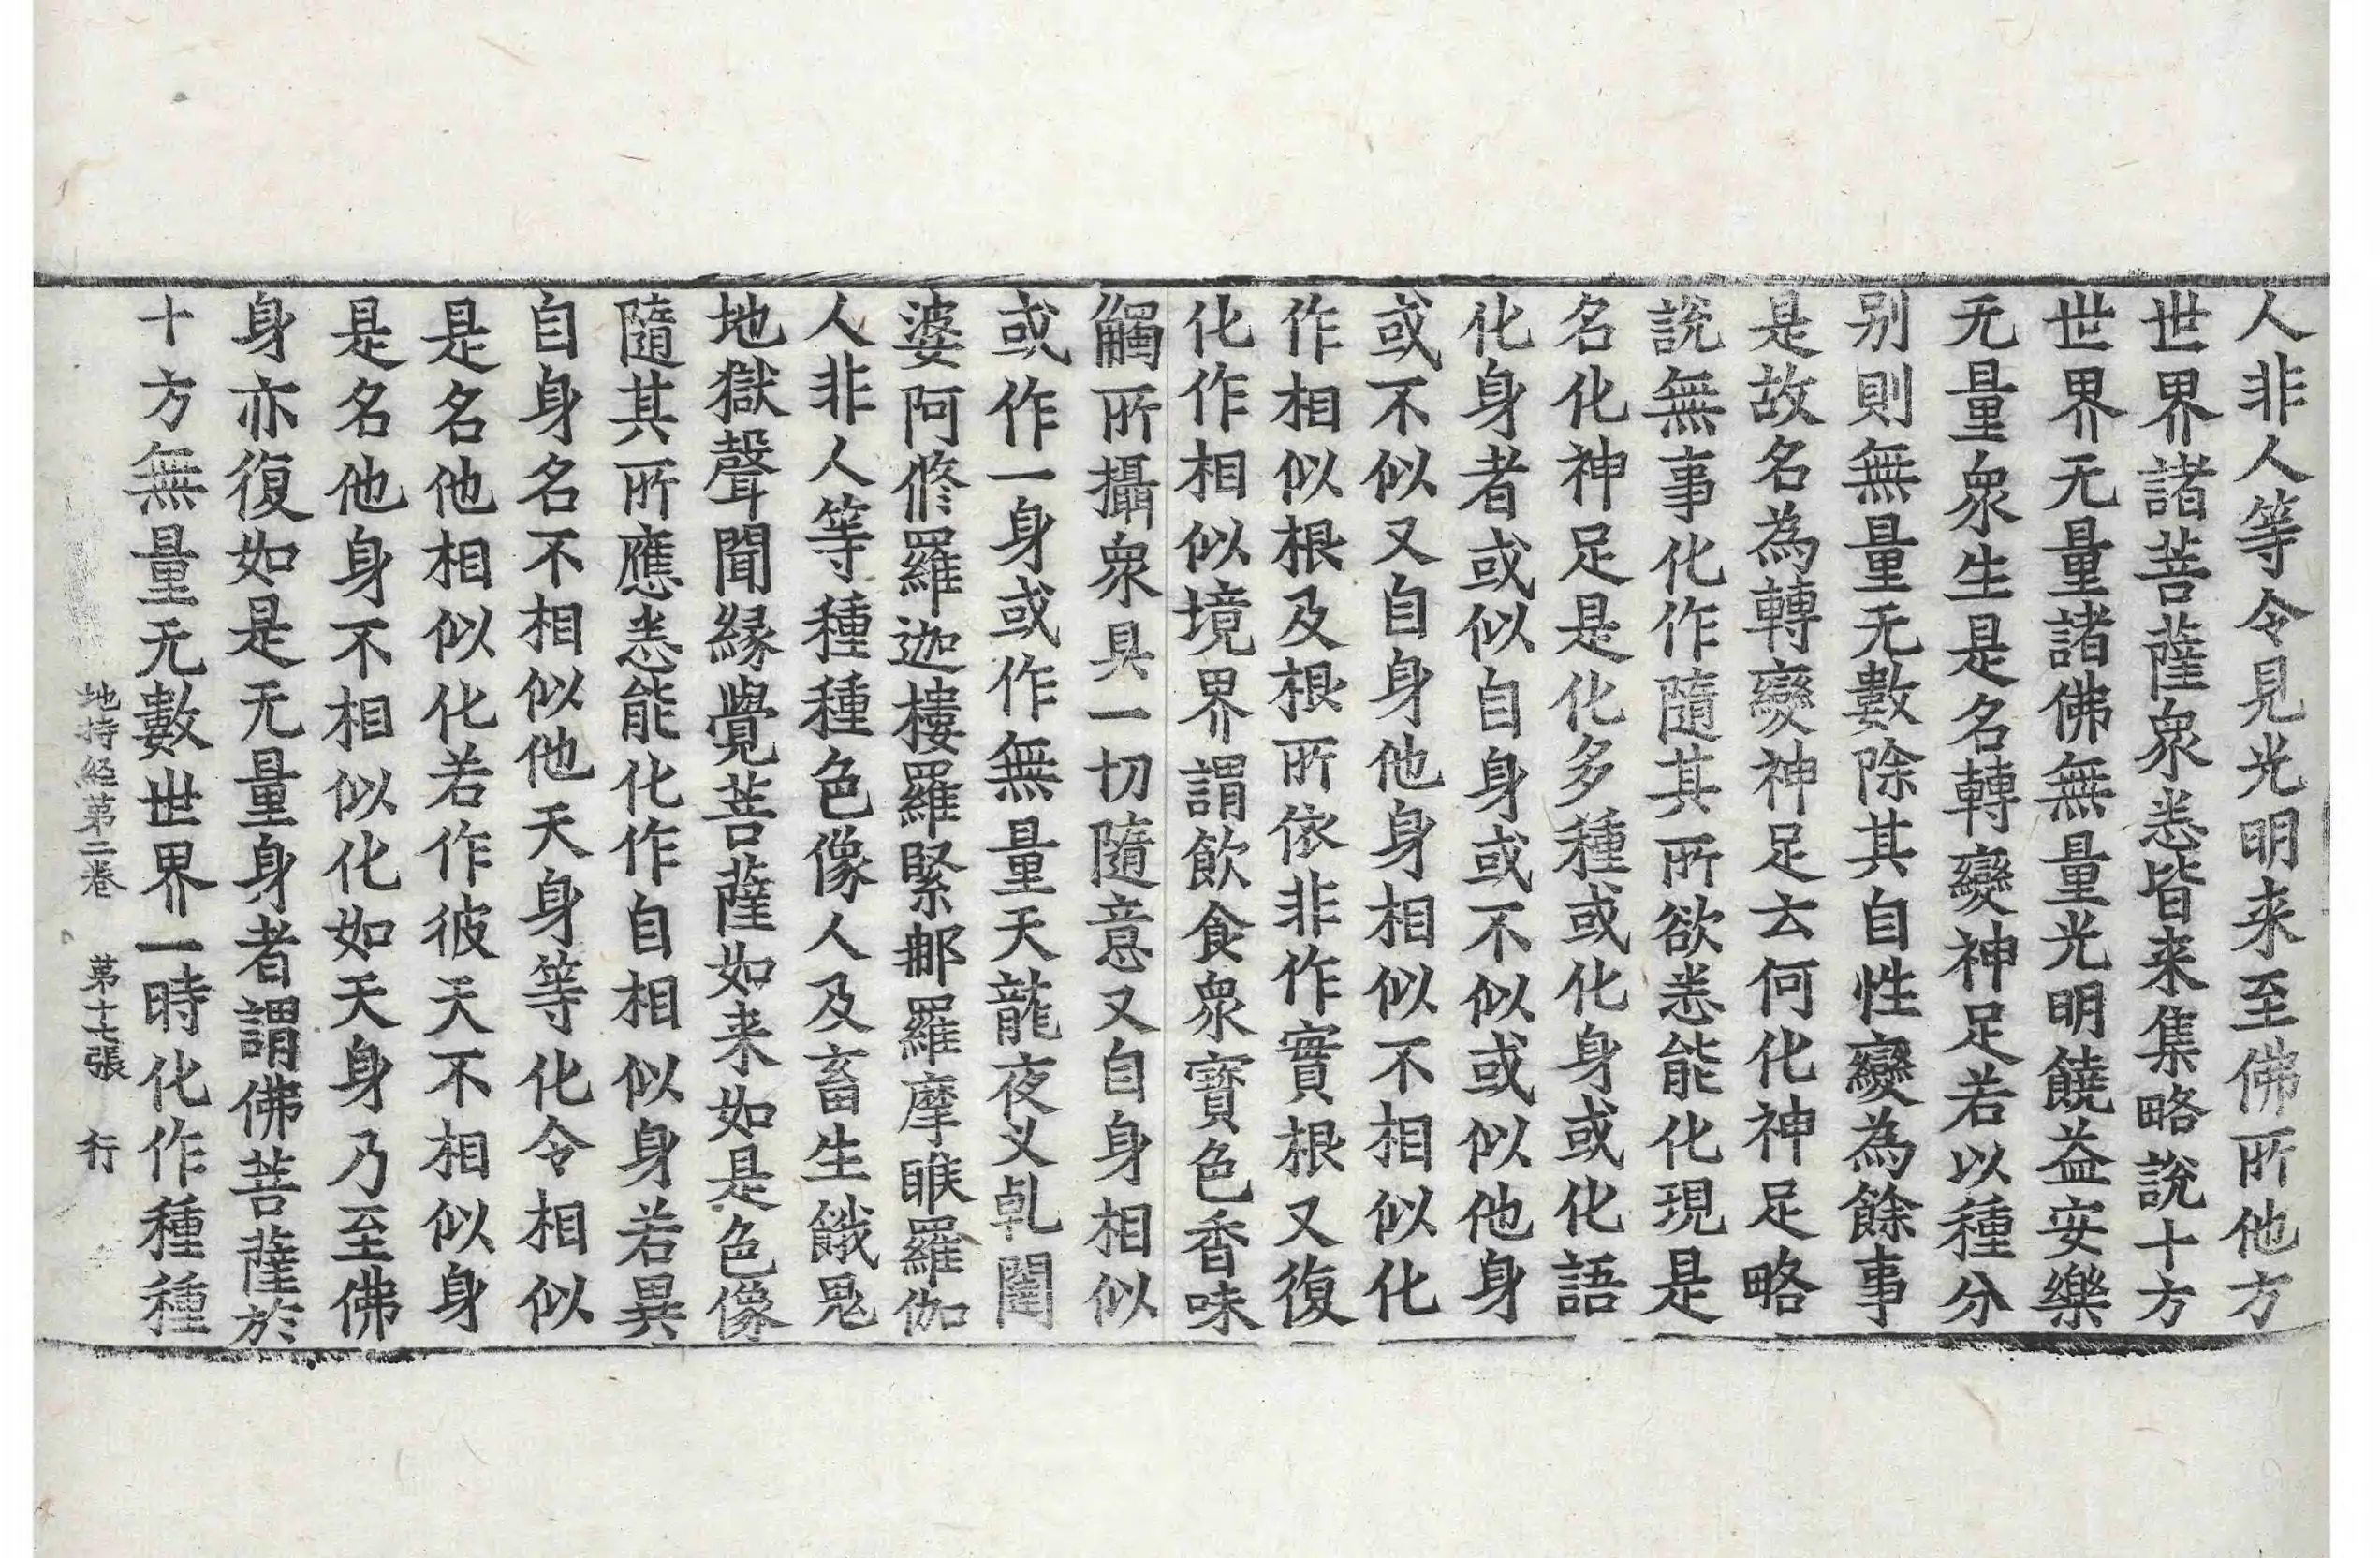 人非人等令見光明来至佛所他方
世界諸菩薩衆悉皆来集略說十方
世界无量諸佛無量光明饒益安樂
无量衆生是名轉變神足若以種分
别則無量无數除其自性變為餘事
是故名為轉變神足云何化神足略
說無事化作隨其所欲悉能化現是
名化神足是化多種或化身或化語
化身者或似自身或不似或似他身
或不似又自身他身相似不相似化
作相似根及根所依非作實根又復
化作相似境界謂飲食衆寳色香味
觸所攝衆具一切隨意又自身相似
或作一身或作無量天龍夜义乹闥
婆阿脩羅迦樓羅緊那羅摩睺羅伽
人非人等種種色像人及畜生餓鬼
地獄聲聞緣覺菩薩如来如是色像
隨其所應悉能化作自相似身若異
自身名不相似他天身等化令相似
是名他相似化若作彼天不相似身
是名他身不相似化如天身乃至佛
身亦復如是无量身者謂佛菩薩於
十方無量无數世界一時化作種種
地持経第二卷 第十七張 行